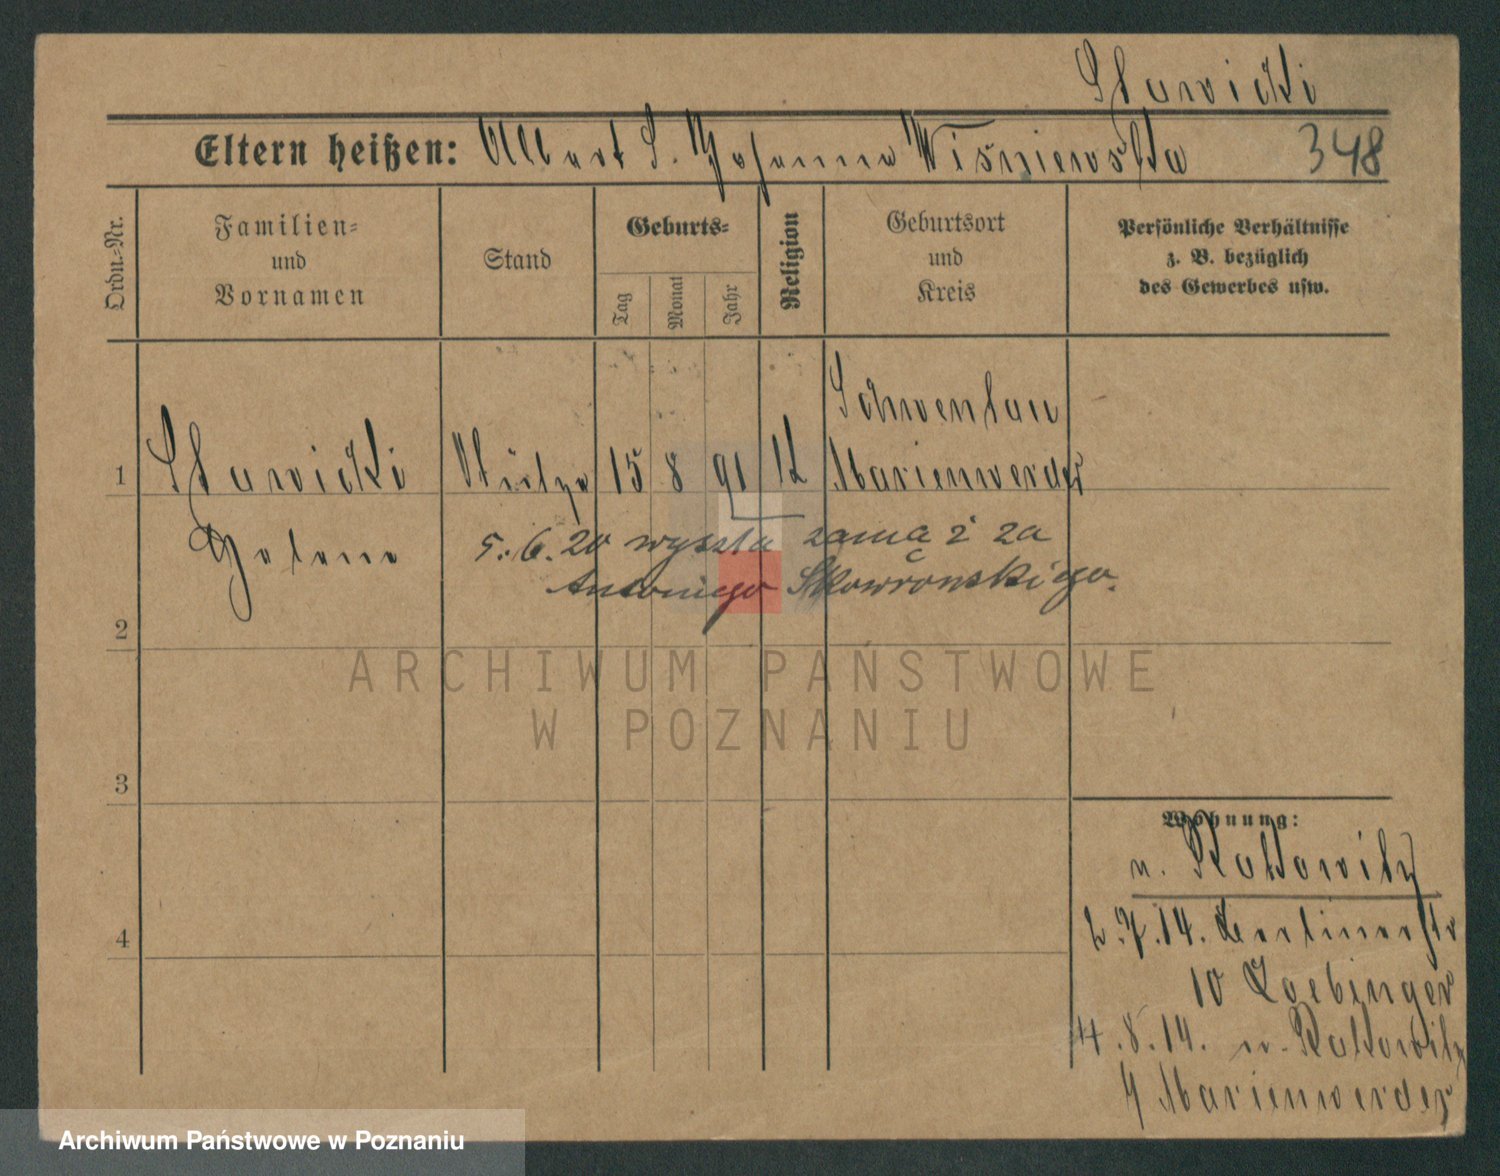 Stawicki
Eltern heißen: Albert S. Johanna Wiśniewska 348
Ordn.-Nr.
Familien-
und
Vornamen
Stand
Geburts-
Tag
Monat
Jahr
Religion
Geburtsort
und
Kreis
Persönliche Verhältnisse
z. B. bezüglich
des Gewerbes usw.
Schwentau
1 Stawicki Stütze 15 8 91 k Marienwerder
Helene 5.6.20 wyszła zamąż za
Antoniego Skowrońskiego.
2
ARCHIWUM PAŃSTWOWE
W POZNANIU
3
Wohnung:
n. Kattowitz
4
2.7.14. Berlinerstr
10 Loebinger
4.8.14. n. Kattowitz
Marienwerder
Archiwum Państwowe w Poznaniu